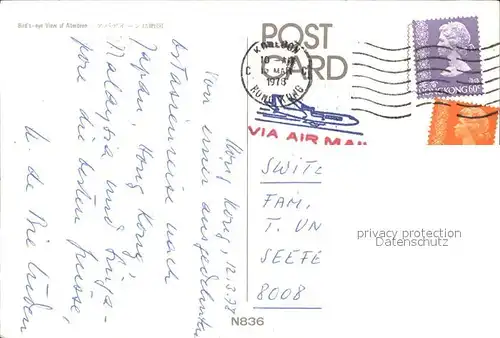 Bird's-eye View of Aberdeen
POST
CARD
KOWLOON
10 AM
12 MAR
1978
HONG KONG
C
HONG KONG 60c
VIA AIR MAIL
Hong Kong, 12.3.78
Von einer ausgedehnten
Ostasienreise nach
Japan, Hong Kong,
Malaysia und Singa-
pore die besten Grüsse,
SWITZ
FAM.
T. UN
SEEFE
8008
privacy protection
Datenschutz
N836